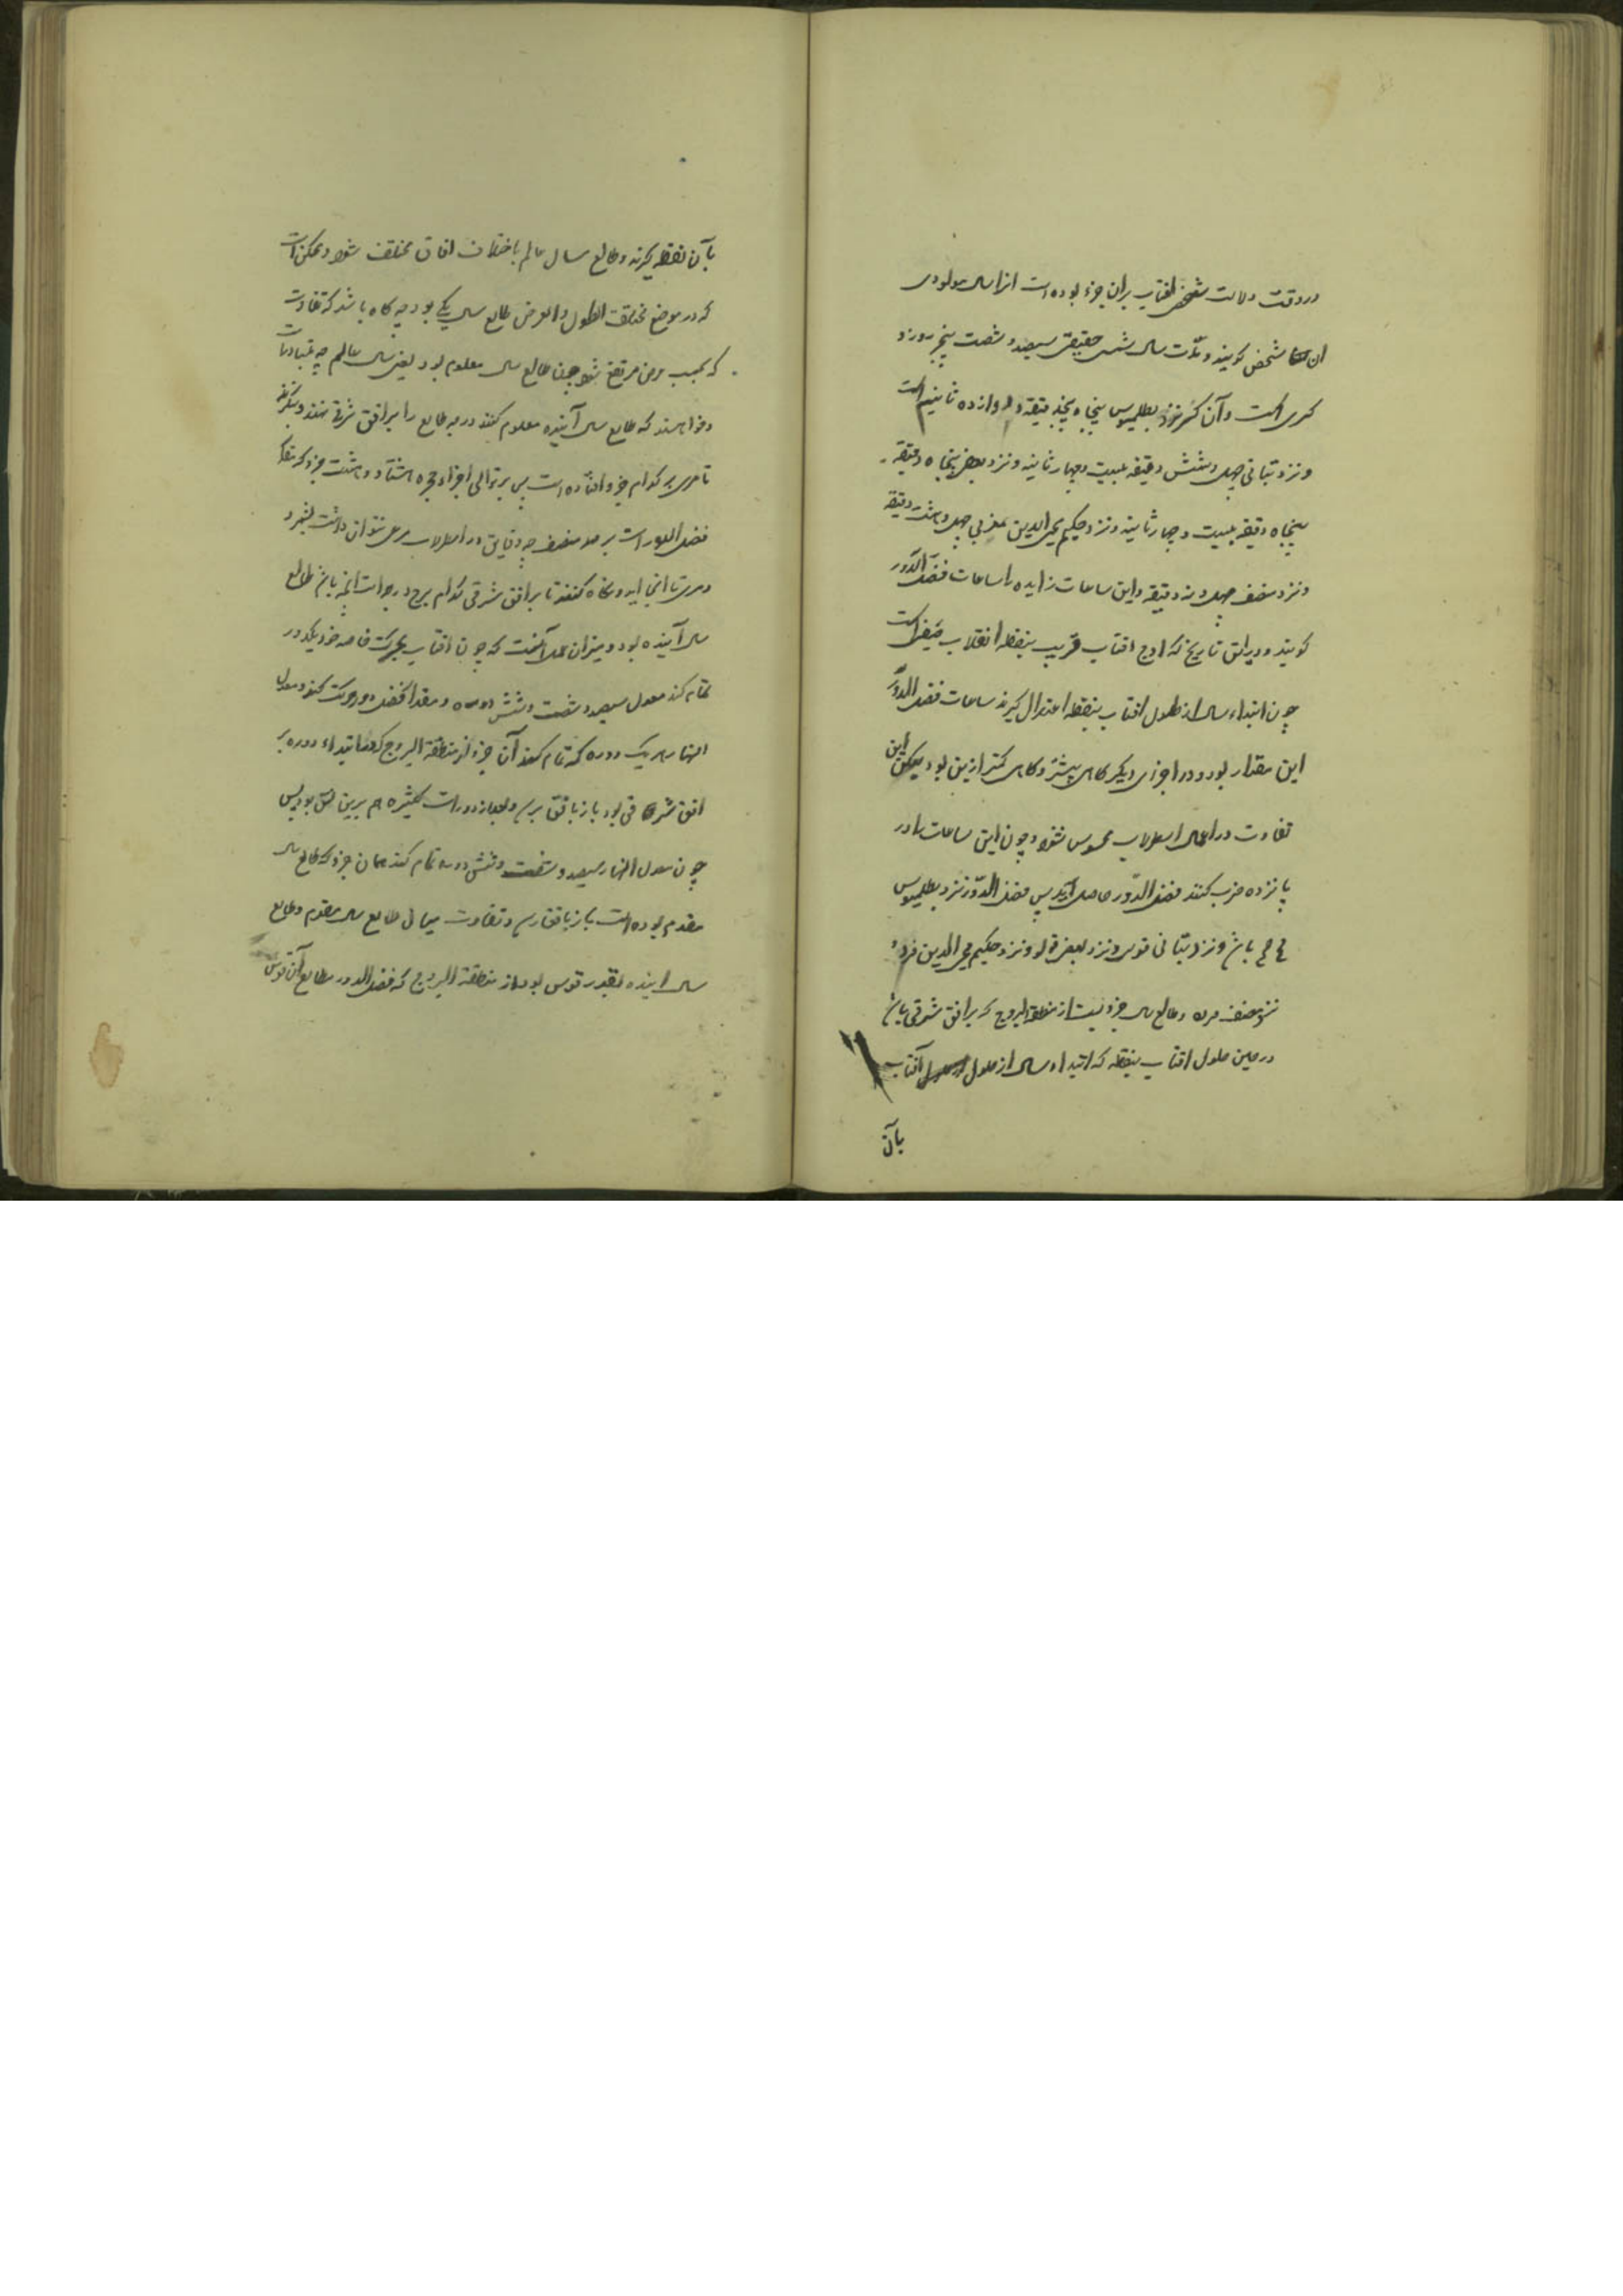 در وقت ولادت شخص افتاب بران جزء بوده است انرا سال مولودی
ان شخص کویند و مدت سال شمسی حقیقی سیصد و شصت پنج روز و
کسری است و آن کسر نزد بطلمیوس پنجاه پنج دقیقه و دوازده ثانیه است
و نزد تبانی چهل و شش دقیقه بیست و چهار ثانیه و نزد بعض پنجاه دقیقه
پنجاه دقیقه بیست و چهار ثانیه و نزد حکیم محی الدین مغربی چهل و هشت دقیقه
و نزد مصنف چهل و نه دقیقه و این ساعات زایده را ساعات فضل الدور
کویند و درین تاریخ که اوج افتاب قریب بنقطه انقلاب صیفی است
چون ابتداء سال از حلول افتاب بنقطه اعتدال کیرند ساعات فضل الدور
این مقدار بود و در اجزای دیکر کاهی بیشتر و کاهی کمتر ازین بود لیکن این
تفاوت در اعمال اسطرلاب محسوس نشود و چون این ساعات را در
پانزده ضرب کنند فضل الدور حاصل آید پس فضل الدور نزد بطلمیوس
باشد و نزد تبانی و نزد بعض و نزد حکیم محی الدین
نزد مصنف و طالع سال جزویست از منطقة البروج که بر افق شرقی باشد
در حین حلول افتاب بنقطه که ابتداء سال از حلول آفتاب
بآن
بآن نقطه کیرند و طالع سال عالم باختلاف افاق مختلف شود و ممکن است
که در موضع مختلف الطول و العرض طالع سال یکی بود چه کاه باشد که تفاوت
که بسبب عرض مرتفع شود چون طالع سال معلوم بود یعنی سال عالم چه
و خواهند که طالع سال آینده معلوم کنند درجه طالع را بر افق شرقی نهند و بنکرند
تا مری بر کدام جزو افتاده است پس بر توالی اجزاء حجره هشتاد و هشت جزو که
فضل الدور است بر مصنف چه دقایق در اسطرلاب مرعی نتوان داشت بشمرد
و مری تا انجا اید و نکاه کنند تا بر افق شرقی کدام برج و درجه است انچه باشد طالع
سال آینده بود و میزان عمل آنست که چون افتاب بحرکت خاصه خود یک دور
تمام کند معدل سیصد و شصت و شش دوره و مقدار فضل دور حرکت کند و معدل
النهار هر یک دوره که تمام کند آن جزء از منطقة البروج که در ابتداء دوره بر
افق شرقی بود باز بافق برسد و بعد از دورات کثیره هم برین نسق بود پس
چون معدل النهار سیصد و شصت و شش دوره تمام کند همان جزو که طالع سال
مقدم بوده است باز بافق رسد و تفاوت میان طالع سال مقدم و طالع
سال اینده بقدر قوس بود از منطقة البروج که فضل الدور مطالع آن قوس